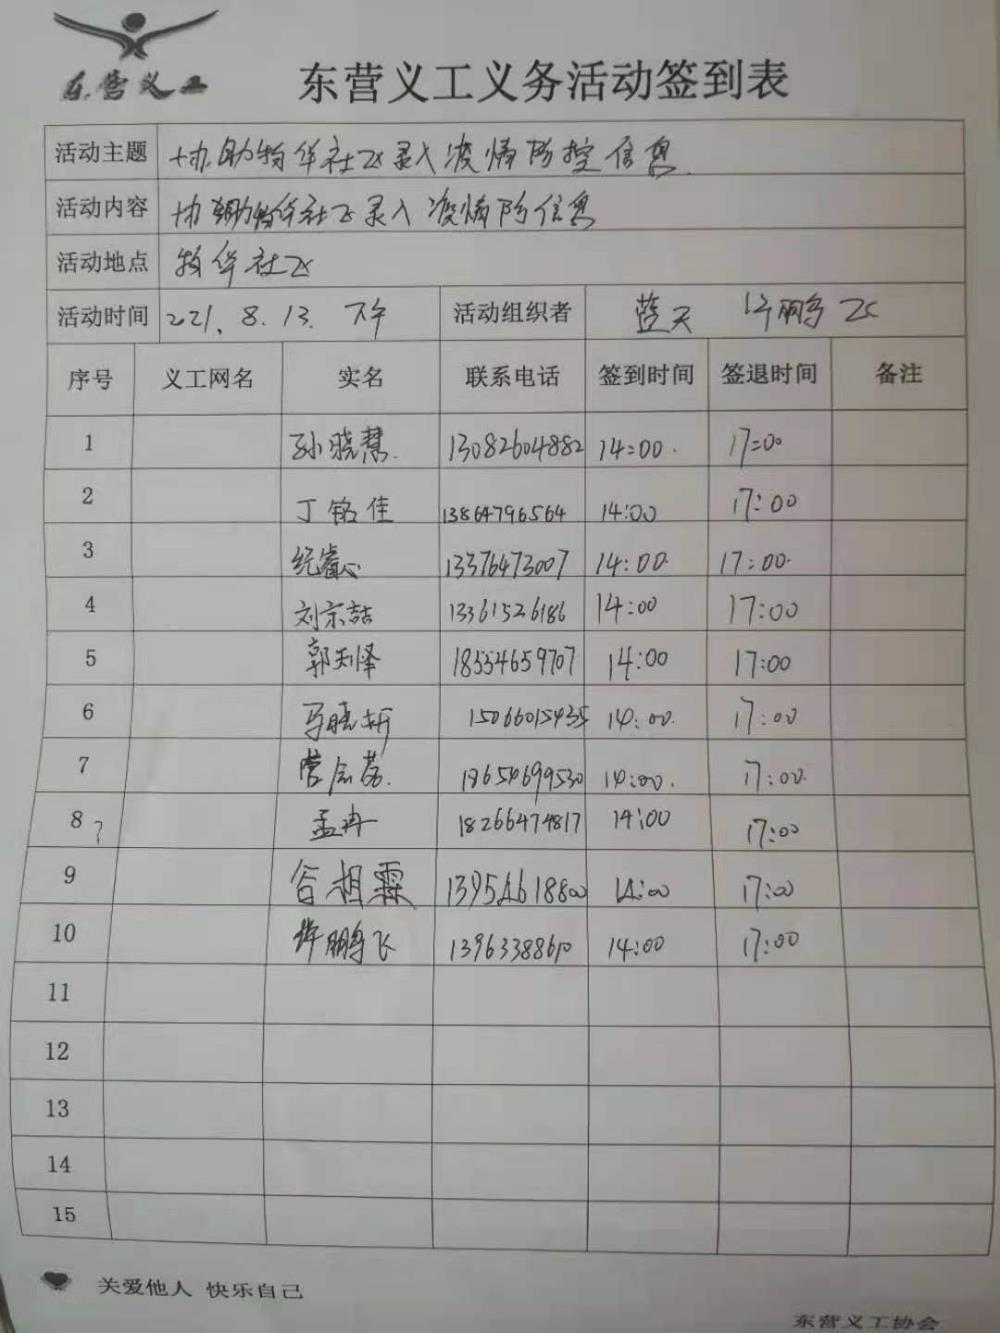 东营义工
东营义工义务活动签到表
活动主题 协助物华社区录入疫情防控信息
活动内容 协助物华社区录入疫情防信息
活动地点 物华社区
活动时间 2021.8.13.下午 活动组织者 蓝天 许鹏飞
序号 义工网名 实名 联系电话 签到时间 签退时间 备注
1 孙晓慧 13082604882 14:00 17:00
2 丁铭佳 13864796564 14:00 17:00
3 纪睿心 13376473007 14:00 17:00
4 刘宗喆 13361526186 14:00 17:00
5 郭天泽 18554659707 14:00 17:00
6 马晓昕 15066015435 14:00 17:00
7 18654699530 14:00 17:00
8? 孟冉 18266474817 14:00 17:00
9 谷相霖 13954618800 14:00 17:00
10 许鹏飞 13963388610 14:00 17:00
11
12
13
14
15
关爱他人 快乐自己
东营义工协会